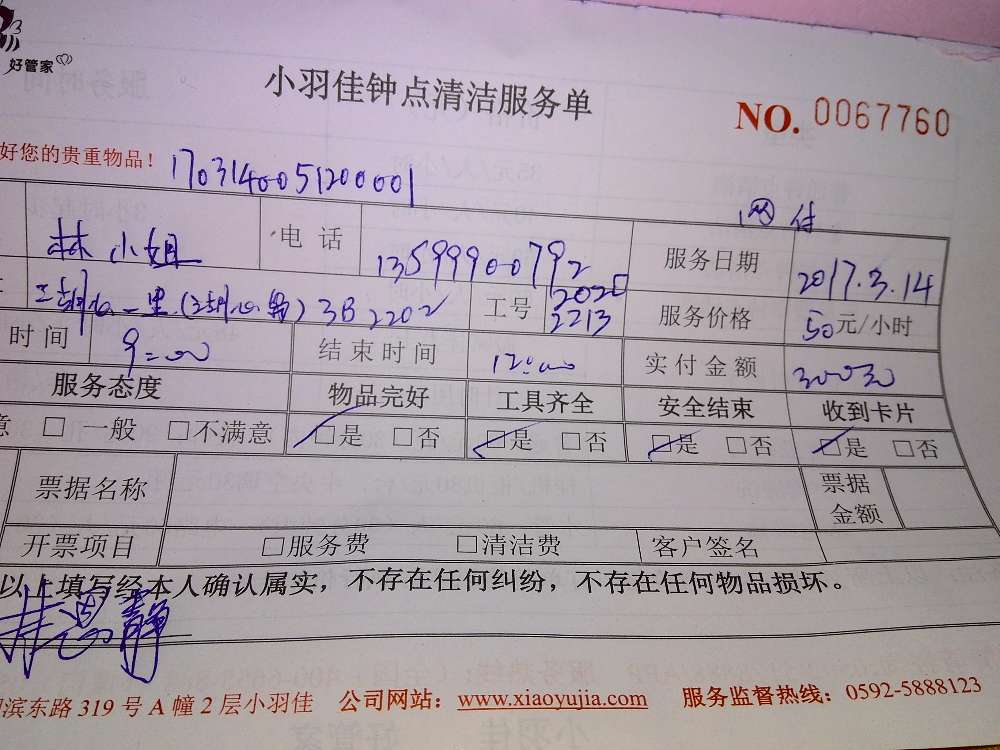 好管家
小羽佳钟点清洁服务单
NO. 0067760
好您的贵重物品！ 170314005120001
网付
林小姐 电话 13599900792 服务日期 2017.3.14
一里 3B 2202 工号 2020 2213 服务价格 50元/小时
时间 9:00 结束时间 12:00 实付金额 300元
服务态度 物品完好 工具齐全 安全结束 收到卡片
意 □ 一般 □不满意 □是 □否 □是 □否 □是 □否 □是 □否
票据名称 票据金额
开票项目 □服务费 □清洁费 客户签名
以上填写经本人确认属实，不存在任何纠纷，不存在任何物品损坏。
林思静
滨东路 319 号 A 幢 2 层小羽佳 公司网站：www.xiaoyujia.com 服务监督热线：0592-5888123